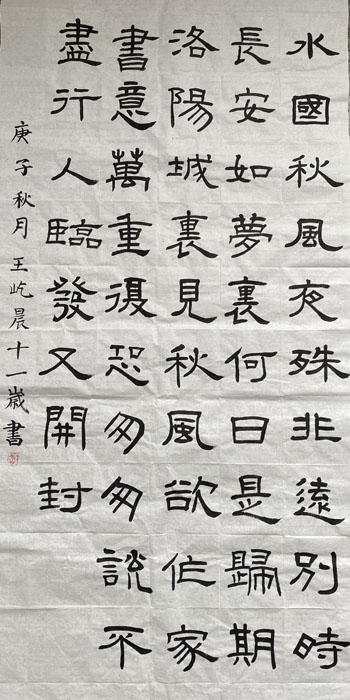 水國秋風夜殊非遠別時
長安如夢裏何日是歸期
洛陽城裏見秋風欲作家
書意萬重復恐匆匆說不
盡行人臨發又開封
庚子秋月王屹晨十一歲書